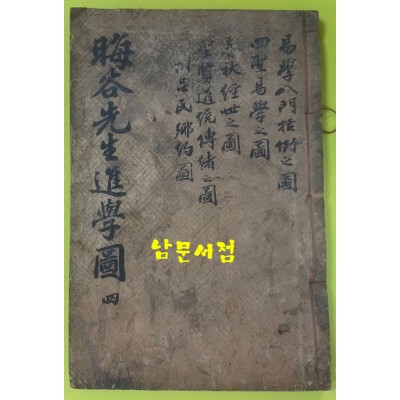 易學入門括例之圖
四聖易學之圖
春秋經世之圖
聖賢道統傳緖之圖
附呂氏鄕約圖
晦谷先生進學圖 四
남문서점